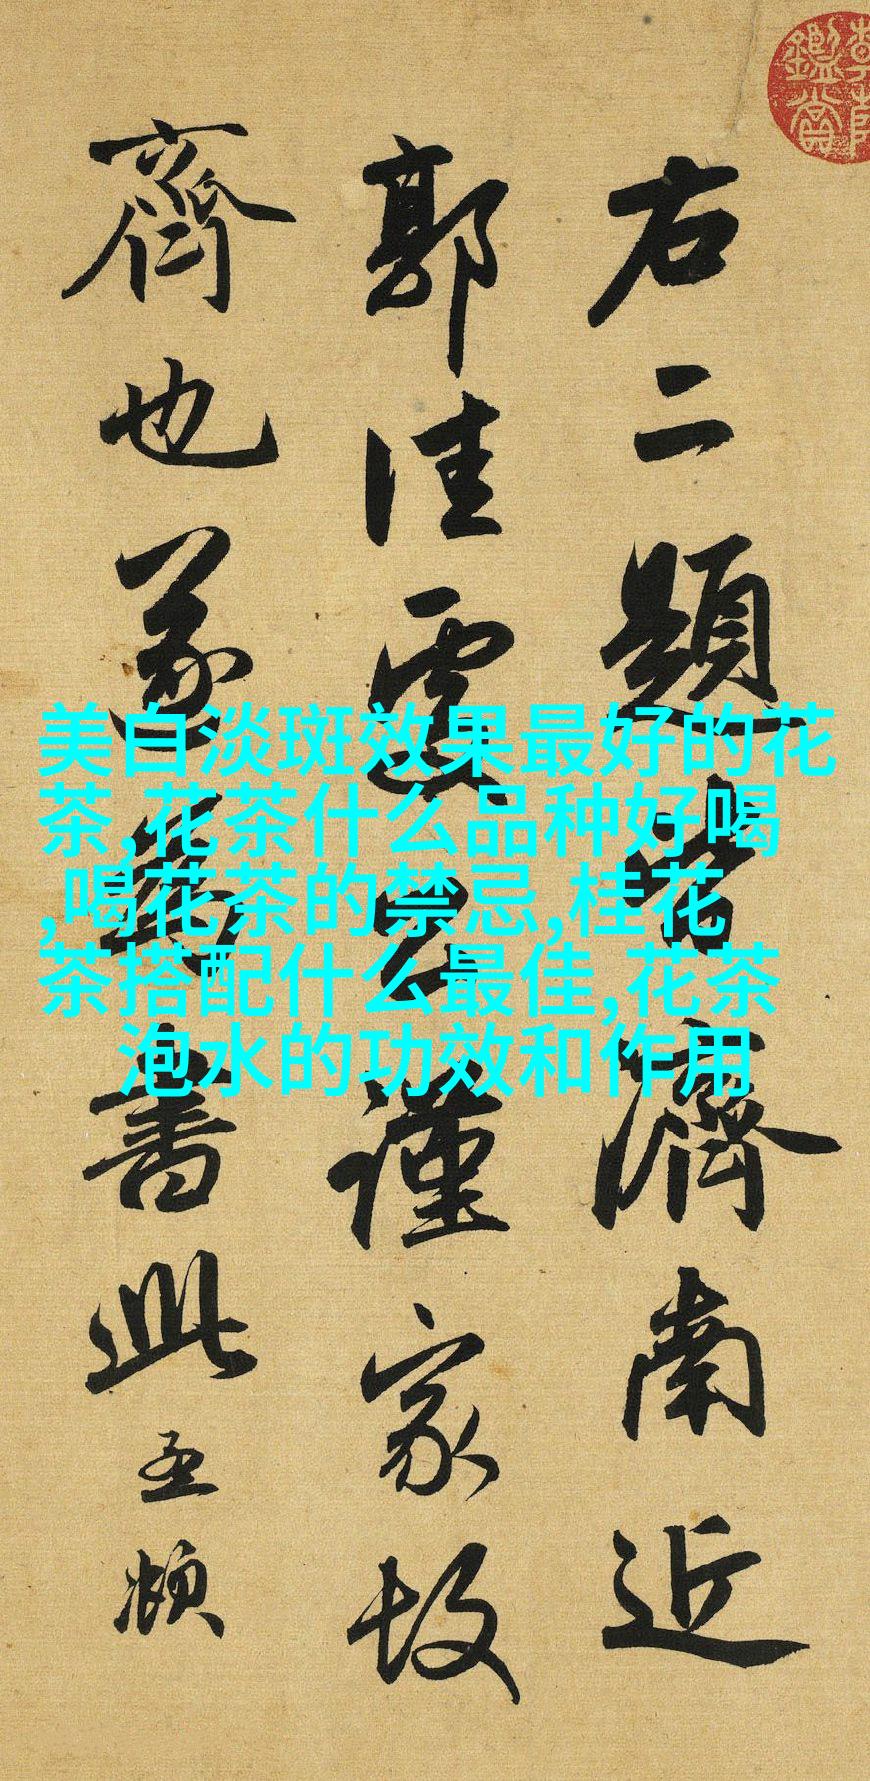 右二題皆濟南近
郭佳處公謹家故
齊也遂為書此孟頫
美白淡斑效果最好的花
茶,花茶什么品种好喝
,喝花茶的禁忌,桂花
茶搭配什么最佳,花茶
泡水的功效和作用